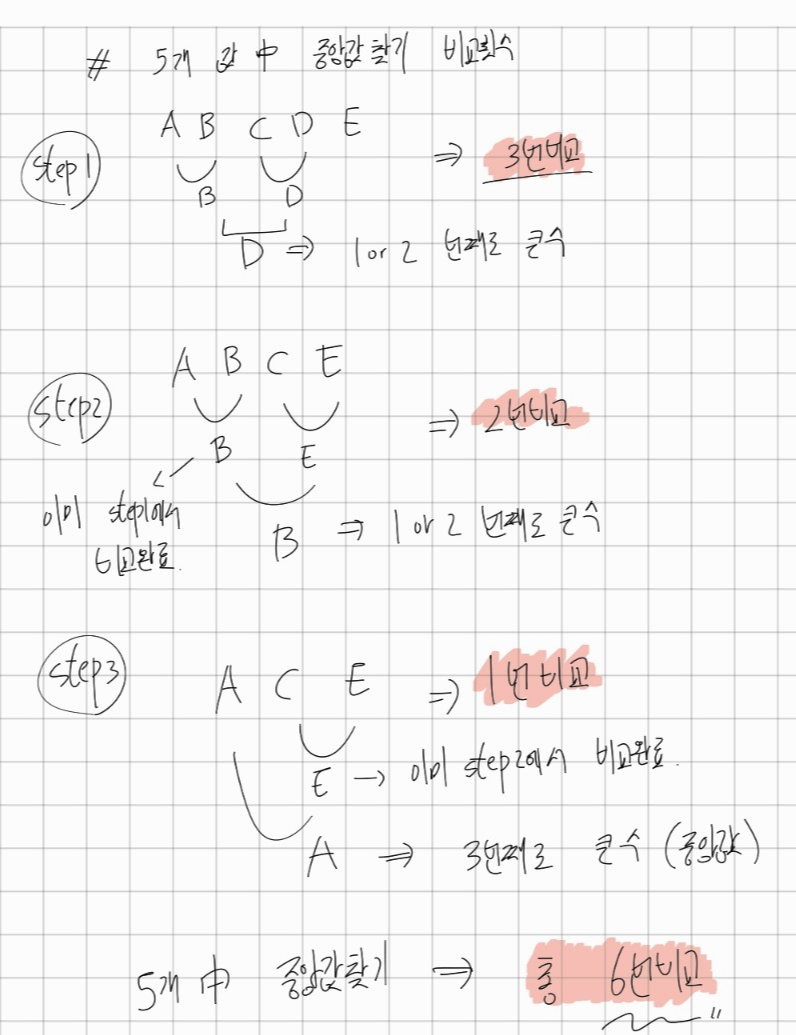 # 5개 값 中 중앙값 찾기 비교횟수
A B C D E
step1
⇒ 3번비교
B D
D ⇒ 1 or 2 번째로 큰수
A B C E
step2
⇒ 2번비교
B E
이미 step1에서
비교완료.
B ⇒ 1 or 2 번째로 큰수
step3
A C E ⇒ 1번 비교
E → 이미 step2에서 비교완료.
A ⇒ 3번째로 큰수 (중앙값)
5개 中 중앙값찾기 ⇒ 총 6번비교